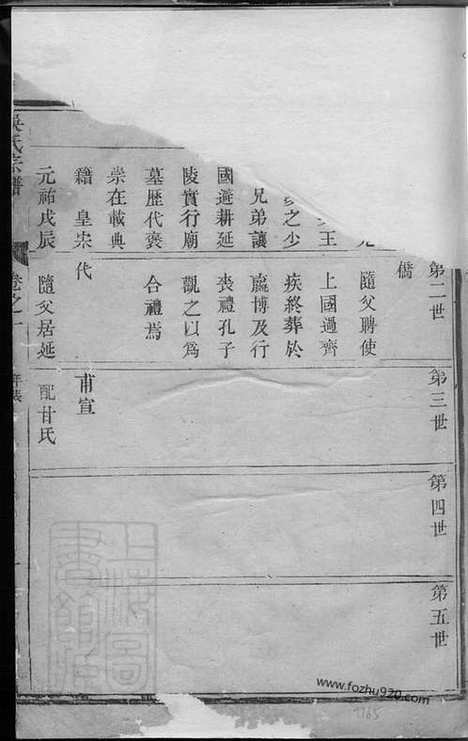 第二世
第三世
第四世
第五世
王
之少
兄弟讓
國避耕延
陵實行廟
墓歷代褒
崇在載典
籍 皇宗
元祐戊辰
隨父聘使
上國過齊
疾終葬於
嬴博及行
喪禮孔子
觀之以為
合禮焉
代
隨父居延
甫宣
配甘氏
吳氏宗譜
卷之一
年表
www.fozhu920.com